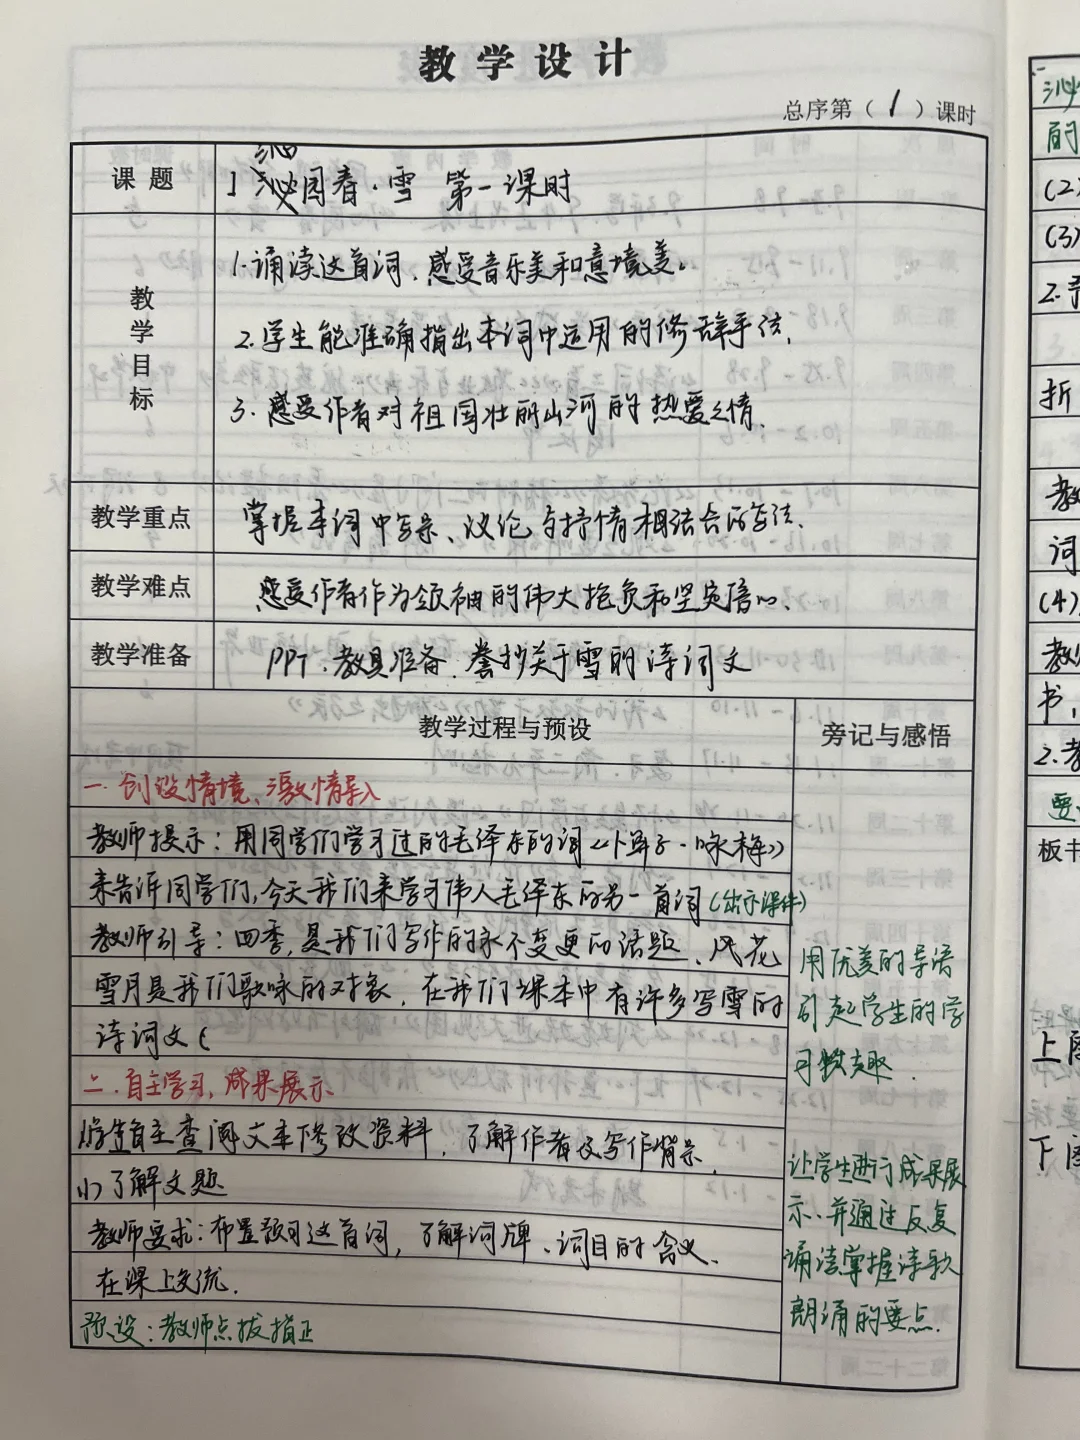 教学设计
总序第（1）课时
课题
沁
1 沁园春·雪 第一课时
教学目标
1.诵读这首词，感受音乐美和意境美。
2.学生能准确指出本词中运用的修辞手法.
3.感受作者对祖国壮丽山河的热爱之情.
教学重点
掌握本词中写景、议论与抒情相结合的写法.
教学难点
感受作者作为领袖的伟大抱负和坚实信心.
教学准备
PPT.教具准备.誊抄关于雪的诗词文
教学过程与预设
旁记与感悟
一.创设情境、激情导入
教师提示：用同学们学习过的毛泽东的词《卜算子·咏梅》
来告诉同学们,今天我们来学习伟人毛泽东的另一首词(出示课件)
教师引导：四季,是我们写作的永不变更的话题、风花
雪月是我们歌咏的对象，在我们课本中有许多写雪的
诗词文(
二.自主学习,成果展示
1.学生自主查阅文本下修改资料，了解作者及写作背景.
(1)了解文题
教师要求:布置预习这首词，了解词牌、词目的含义.
在课上交流.
预设:教师点拔指正
用优美的导语
引起学生的学
习兴趣.
让学生进行成果展
示、并通过反复
诵读掌握诗歌
朗诵的要点.
沁
的
(2)
(3)
2.
折
教
词
(4)
教
书，
2.
要
板书
上阕
下阕